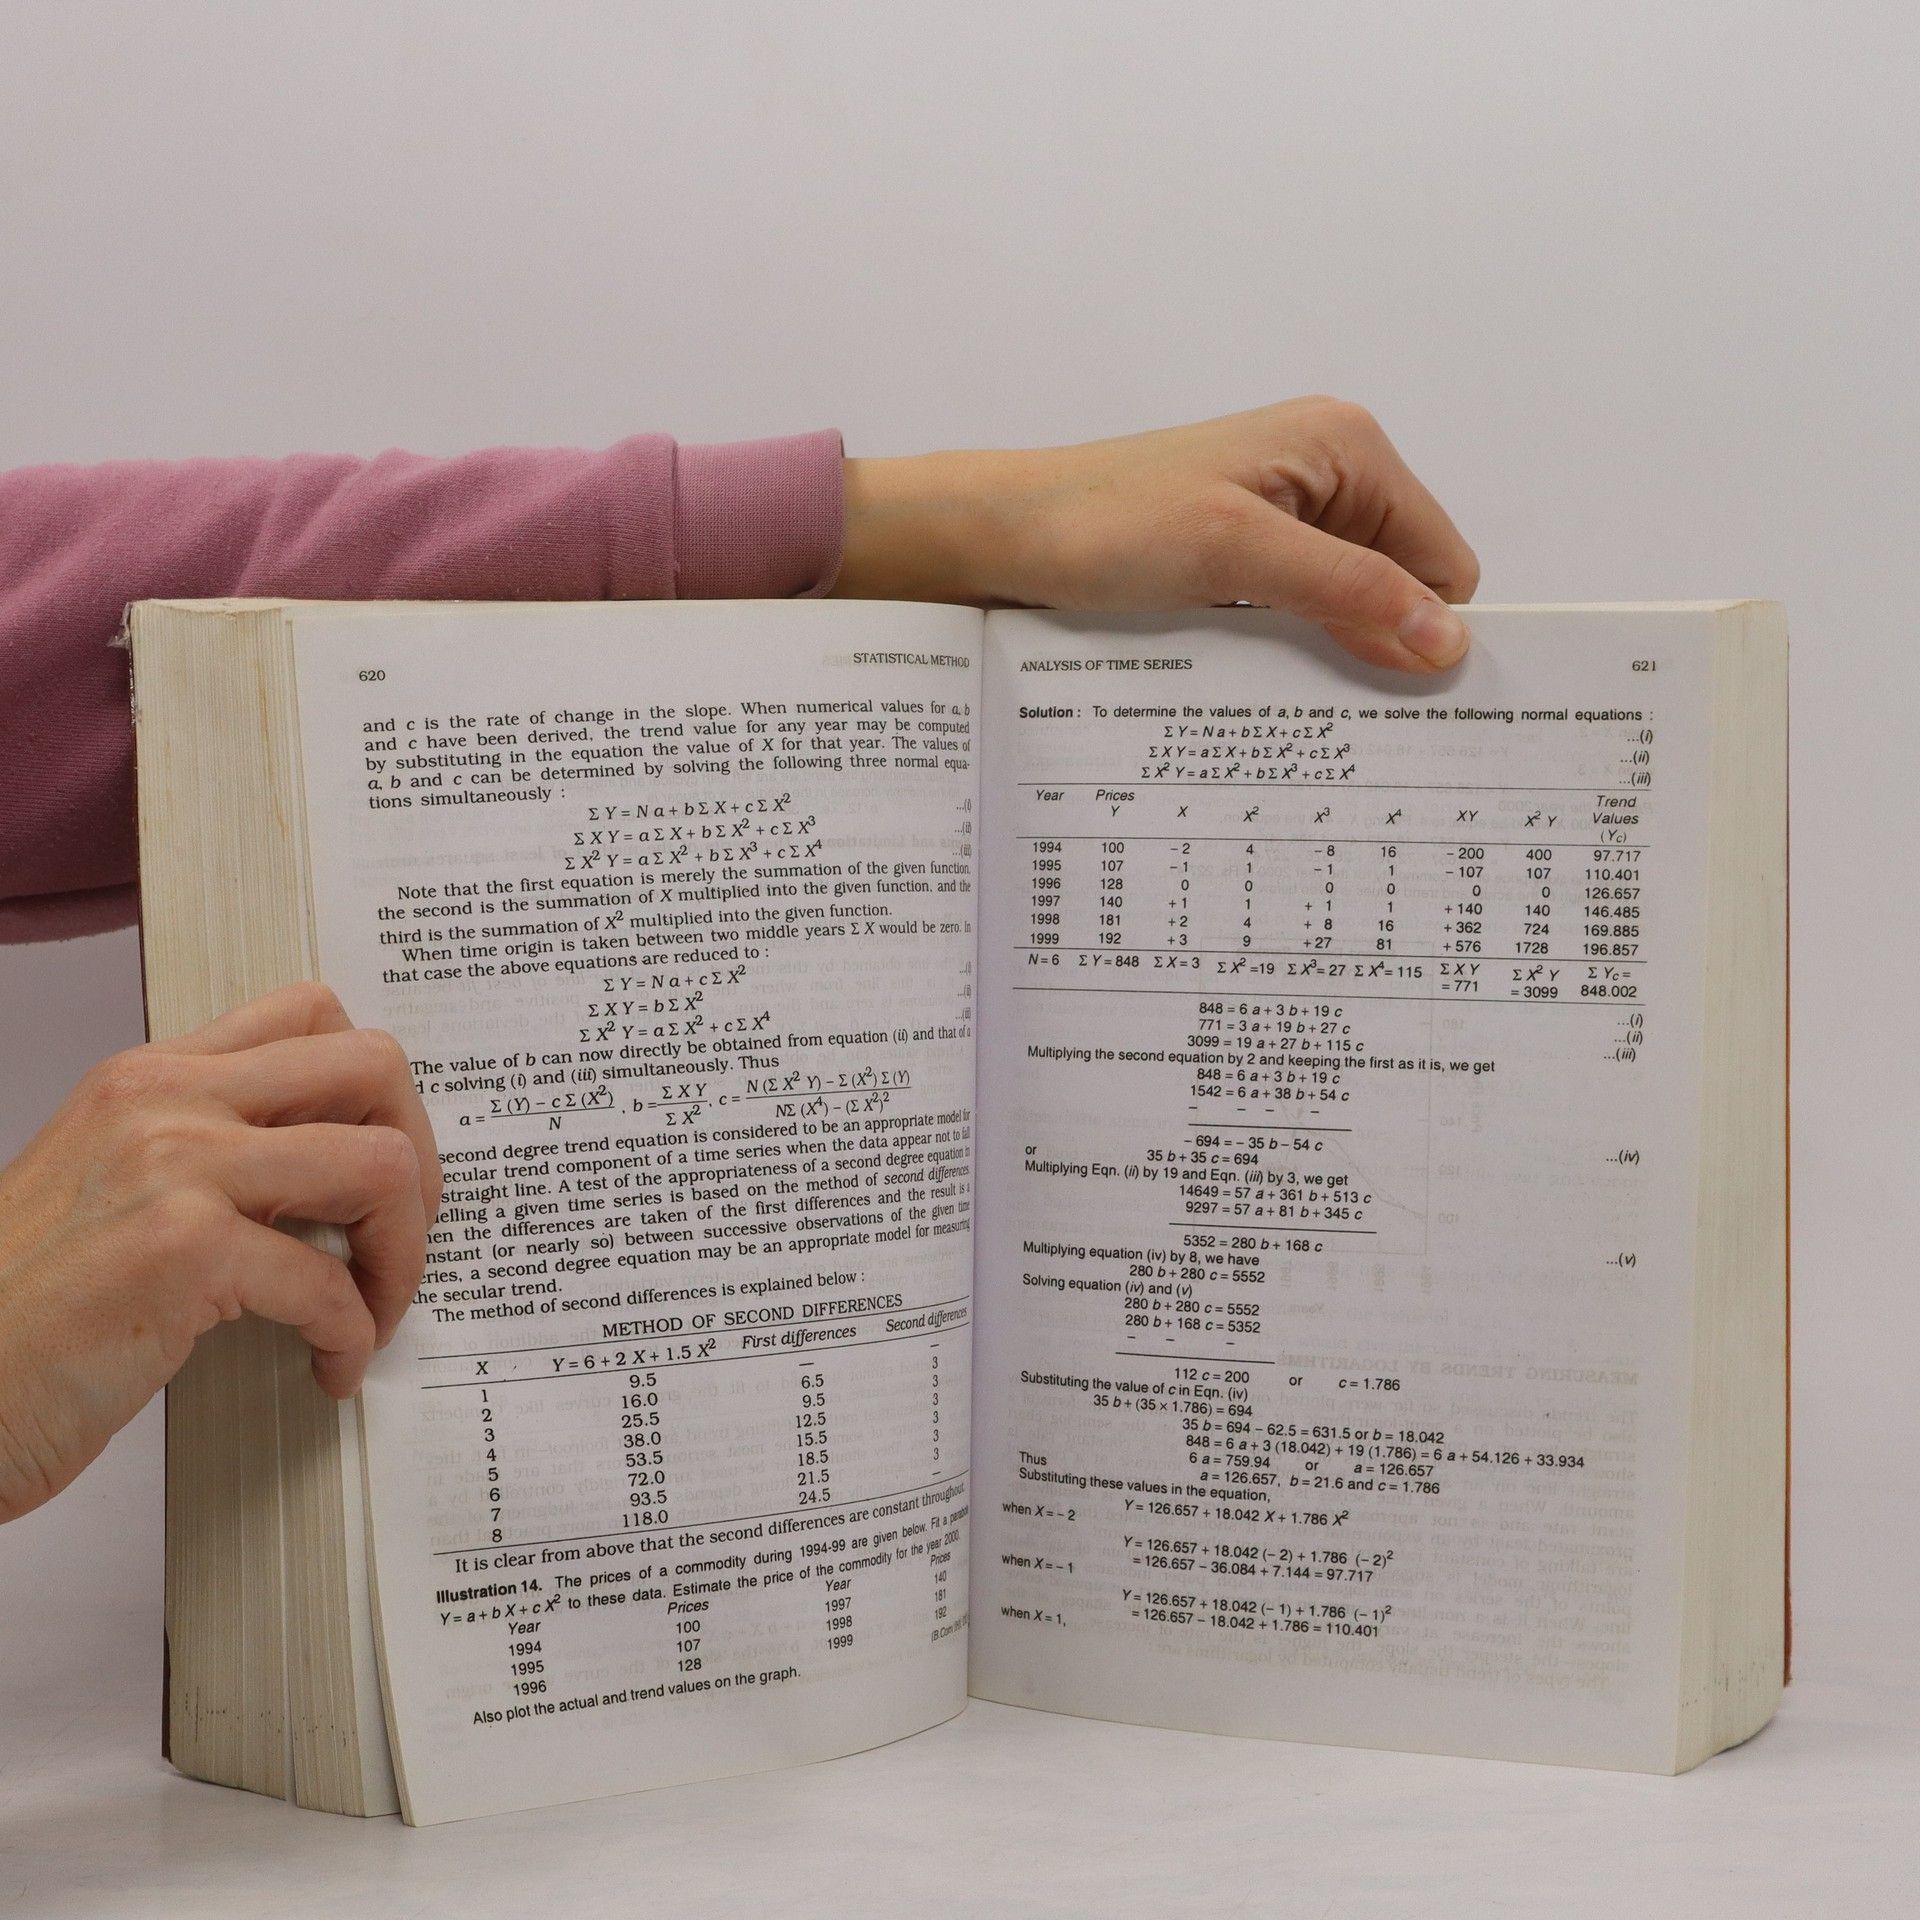 620
STATISTICAL METHOD
and c is the rate of change in the slope. When numerical values for a, b
and c have been derived, the trend value for any year may be computed
by substituting in the equation the value of X for that year. The values of
a, b and c can be determined by solving the following three normal equa-
tions simultaneously :
Σ Y = N a + b Σ X + c Σ X² ...(i)
Σ X Y = a Σ X + b Σ X² + c Σ X³ ...(ii)
Σ X² Y = a Σ X² + b Σ X³ + c Σ X⁴ ...(iii)
Note that the first equation is merely the summation of the given function,
the second is the summation of X multiplied into the given function, and the
third is the summation of X² multiplied into the given function.
When time origin is taken between two middle years Σ X would be zero. In
that case the above equations are reduced to :
Σ Y = N a + c Σ X² ...(i)
Σ X Y = b Σ X² ...(ii)
Σ X² Y = a Σ X² + c Σ X⁴ ...(iii)
The value of b can now directly be obtained from equation (ii) and that of a
c solving (i) and (iii) simultaneously. Thus
a = Σ (Y) – c Σ (X²) / N , b = Σ X Y / Σ X² , c = N (Σ X² Y) – Σ (X²) Σ (Y) / NΣ (X⁴) – (Σ X²)²
second degree trend equation is considered to be an appropriate model for
ecular trend component of a time series when the data appear not to fall
straight line. A test of the appropriateness of a second degree equation in
elling a given time series is based on the method of second differences
en the differences are taken of the first differences and the result is a
nstant (or nearly so) between successive observations of the given time
ries, a second degree equation may be an appropriate model for measuring
the secular trend.
The method of second differences is explained below :
METHOD OF SECOND DIFFERENCES
X Y = 6 + 2 X + 1.5 X² First differences Second differences
1 9.5 — —
2 16.0 6.5 3
3 25.5 9.5 3
4 38.0 12.5 3
5 53.5 15.5 3
6 72.0 18.5 3
7 93.5 21.5 3
8 118.0 24.5 —
It is clear from above that the second differences are constant throughout.
Illustration 14. The prices of a commodity during 1994-99 are given below. Fit a parabola
Y = a + b X + c X² to these data. Estimate the price of the commodity for the year 2000.
Year Prices Year Prices
1994 100 1997 140
1995 107 1998 181
1996 128 1999 192
(B.Com
Also plot the actual and trend values on the graph.
ANALYSIS OF TIME SERIES
621
Solution : To determine the values of a, b and c, we solve the following normal equations :
Σ Y = N a + b Σ X + c Σ X² ...(i)
Σ X Y = a Σ X + b Σ X² + c Σ X³ ...(ii)
Σ X² Y = a Σ X² + b Σ X³ + c Σ X⁴ ...(iii)
Year Prices Y X X² X³ X⁴ XY X² Y Trend Values (Yc)
1994 100 – 2 4 – 8 16 – 200 400 97.717
1995 107 – 1 1 – 1 1 – 107 107 110.401
1996 128 0 0 0 0 0 0 126.657
1997 140 + 1 1 + 1 1 + 140 140 146.485
1998 181 + 2 4 + 8 16 + 362 724 169.885
1999 192 + 3 9 + 27 81 + 576 1728 196.857
N = 6 Σ Y = 848 Σ X = 3 Σ X² = 19 Σ X³ = 27 Σ X⁴ = 115 Σ X Y = 771 Σ X² Y = 3099 Σ Yc = 848.002
848 = 6 a + 3 b + 19 c ...(i)
771 = 3 a + 19 b + 27 c ...(ii)
3099 = 19 a + 27 b + 115 c ...(iii)
Multiplying the second equation by 2 and keeping the first as it is, we get
848 = 6 a + 3 b + 19 c
1542 = 6 a + 38 b + 54 c
– – – –
– 694 = – 35 b – 54 c
or 35 b + 35 c = 694 ...(iv)
Multiplying Eqn. (ii) by 19 and Eqn. (iii) by 3, we get
14649 = 57 a + 361 b + 513 c
9297 = 57 a + 81 b + 345 c
5352 = 280 b + 168 c ...(v)
Multiplying equation (iv) by 8, we have
280 b + 280 c = 5552
Solving equation (iv) and (v)
280 b + 280 c = 5552
280 b + 168 c = 5352
– – –
112 c = 200 or c = 1.786
Substituting the value of c in Eqn. (iv)
35 b + (35 × 1.786) = 694
35 b = 694 – 62.5 = 631.5 or b = 18.042
848 = 6 a + 3 (18.042) + 19 (1.786) = 6 a + 54.126 + 33.934
6 a = 759.94 or a = 126.657
Thus a = 126.657, b = 21.6 and c = 1.786
Substituting these values in the equation,
Y = 126.657 + 18.042 X + 1.786 X²
when X = – 2
Y = 126.657 + 18.042 (– 2) + 1.786 (– 2)²
= 126.657 – 36.084 + 7.144 = 97.717
when X = – 1
Y = 126.657 + 18.042 (– 1) + 1.786 (– 1)²
= 126.657 – 18.042 + 1.786 = 110.401
when X = 1,